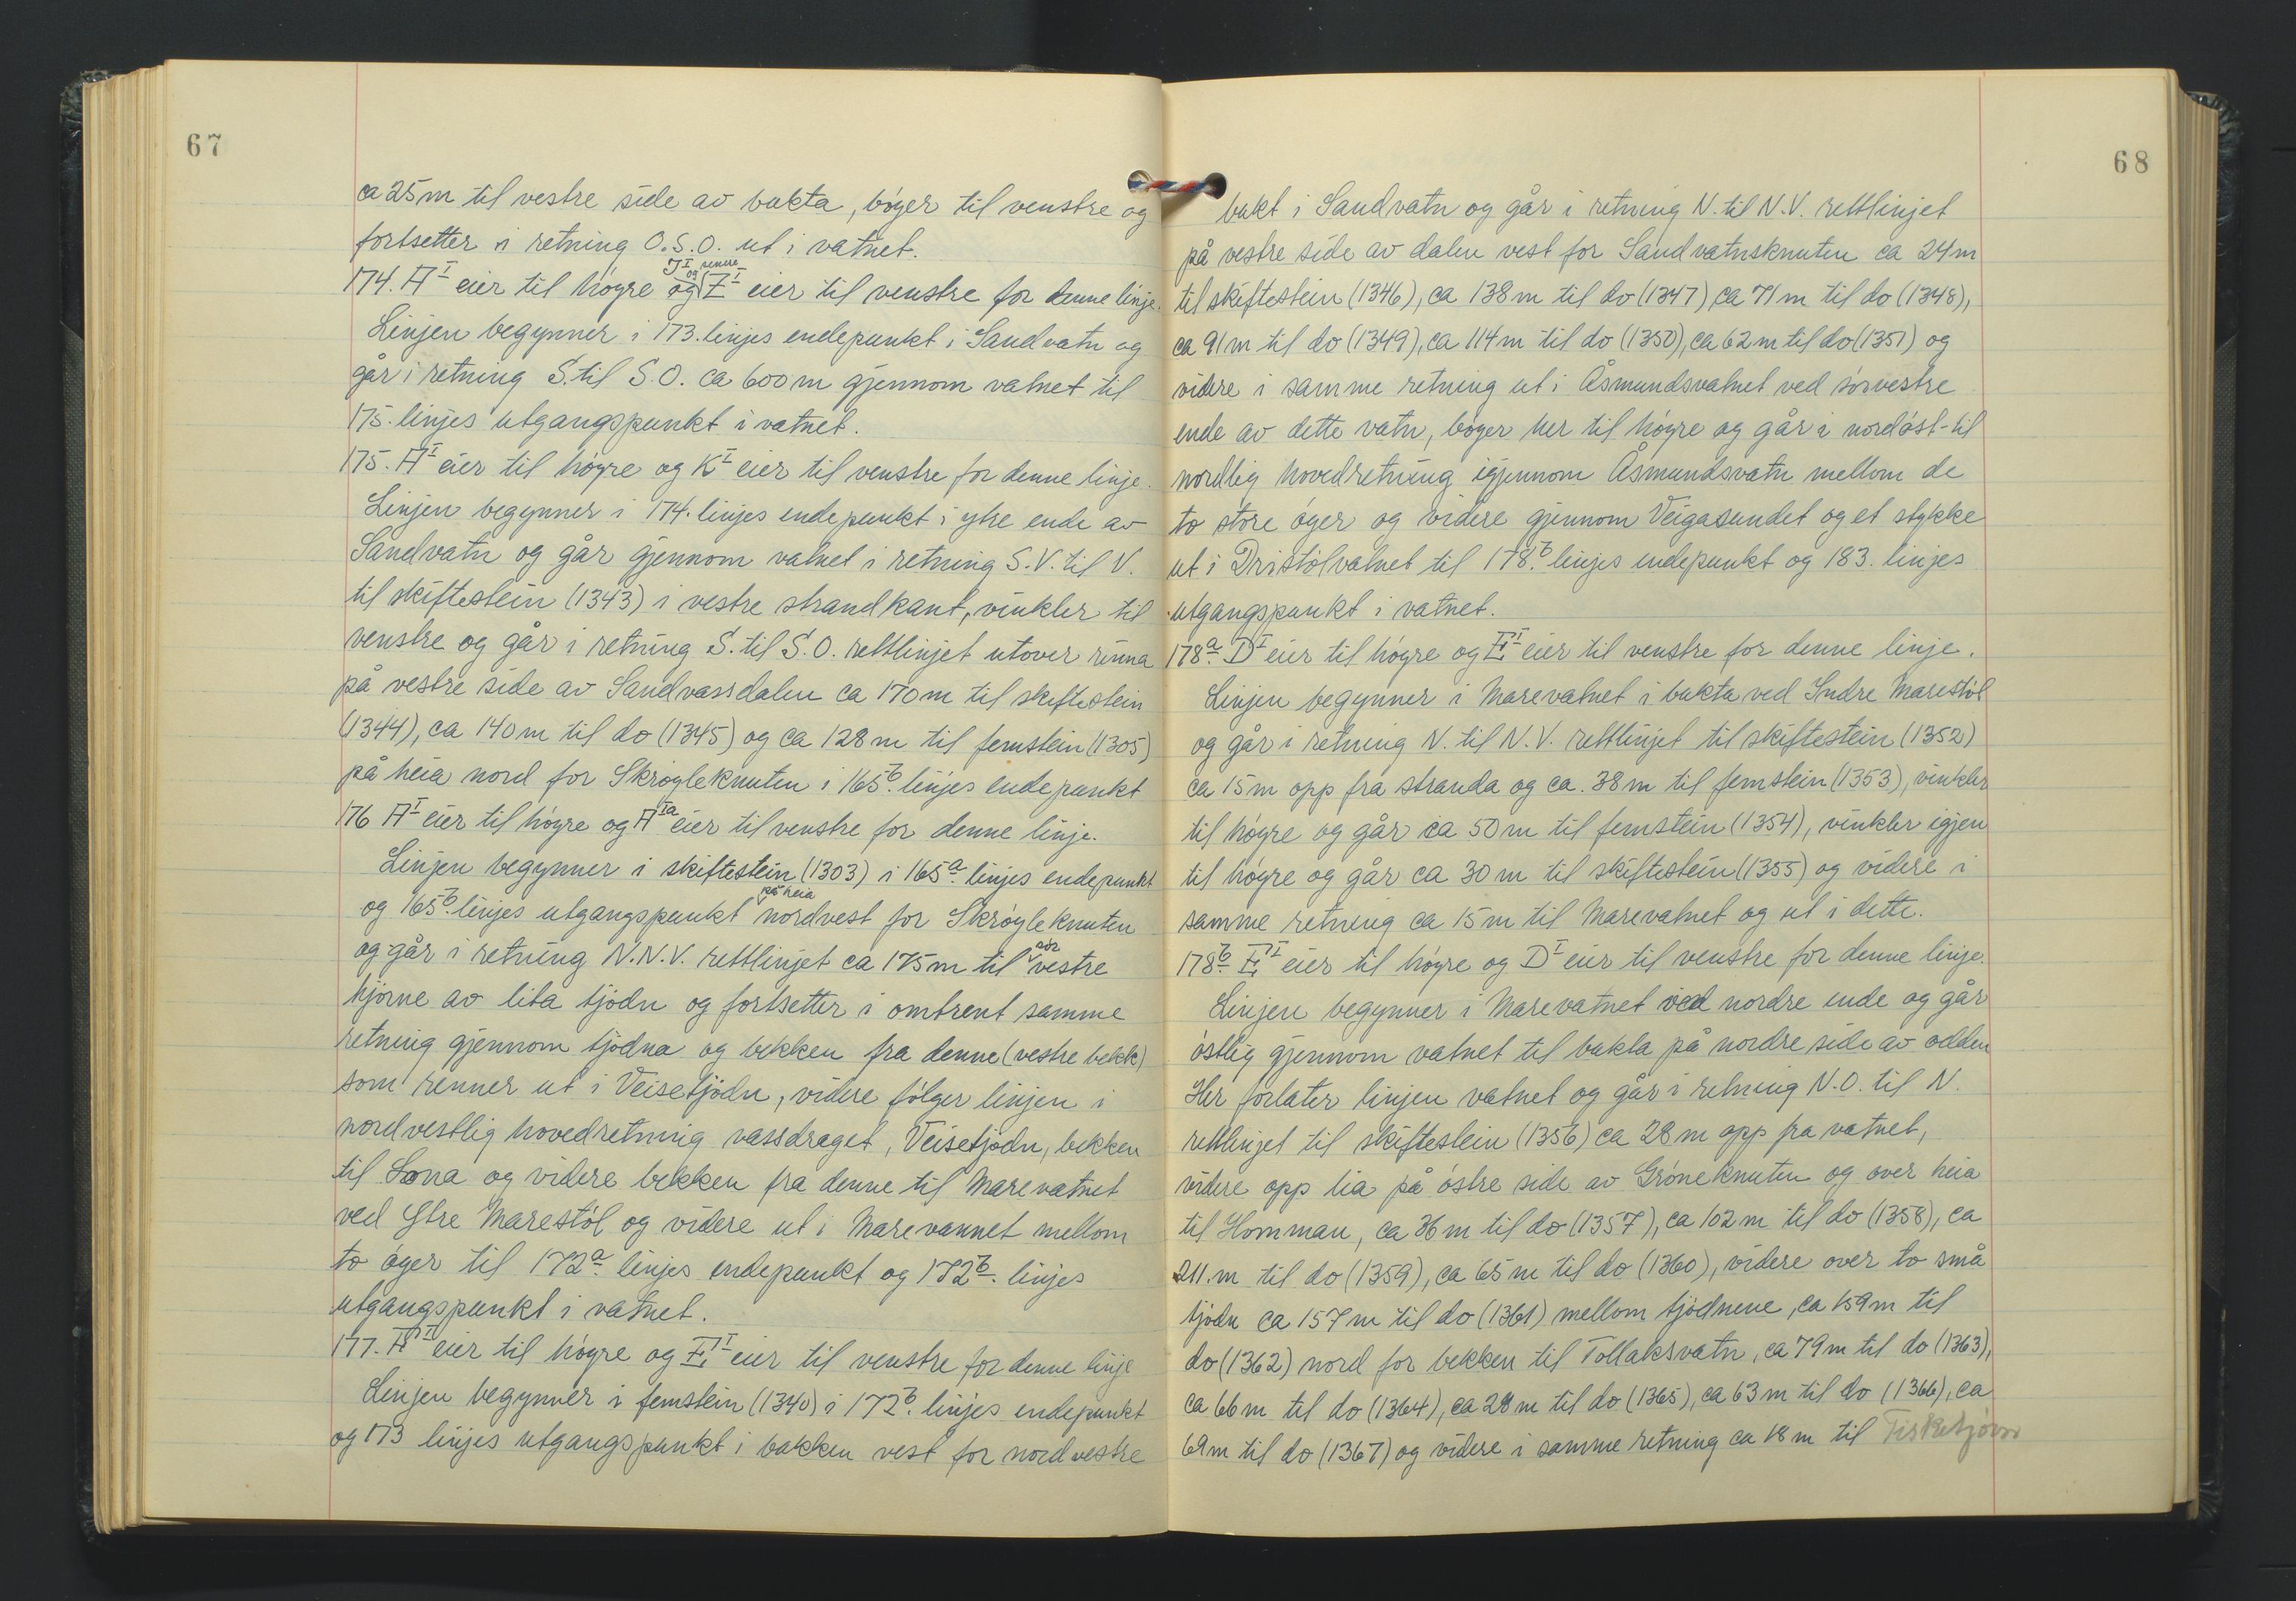 67
ca 25 m til vestre side av bukta, bøyer til venstre og
fortsetter i retning O.S.O. ut i vatnet.
174. A I eier til høyre og J I og senere Z I eier til venstre for denne linje.
Linjen begynner i 173. linjes endepunkt i Sandvatn og
går i retning S. til S.O. ca 600 m gjennom vatnet til
175. linjes utgangspunkt i vatnet.
175. A I eier til høyre og K I eier til venstre for denne linje.
Linjen begynner i 174. linjes endepunkt i ytre ende av
Sandvatn og går gjennom vatnet i retning S.V. til V.
til skiftestein (1343) i vestre strandkant, vinkler til
venstre og går i retning S. til S.O. rettlinjet utover rinna
på vestre side av Sandvassdalen ca 170 m til skiftestein
(1344), ca 140 m til do (1345) og ca 128 m til femstein (1305)
på heia nord for Skrøyleknuten i 165 b. linjes endepunkt
176 A I eier til høyre og A Ia eier til venstre for denne linje.
Linjen begynner i skiftestein (1303) i 165 a. linjes endepunkt
og 165 b. linjes utgangspunkt på heia nordvest for Skrøyleknuten
og går i retning N.N.V. rettlinjet ca 175 m til vestre
hjørne av lita tjødn og fortsetter i omtrent samme
retning gjennom tjødna og bekken fra denne (vestre bekk)
som renner ut i Veisetjødn, videre følger linjen i
nordvestlig hovedretning vassdraget, Veisetjødn, bekken
til Lona og videre bekken fra denne til Marevatnet
ved Ytre Marestøl og videre ut i Marevannet mellom
to øyer til 172 a. linjes endepunkt og 172 b. linjes
utgangspunkt i vatnet.
177. A I eier til høyre og E I eier til venstre for denne linje
Linjen begynner i femstein (1340) i 172 b. linjes endepunkt
og 173 linjes utgangspunkt i bakken vest for nordvestre
68
bukt i Sandvatn og går i retning N. til N.V. rettlinjet
på vestre side av dalen vest for Sandvatnsknuten ca 24 m
til skiftestein (1346), ca 138 m til do (1347), ca 71 m til do (1348),
ca 91 m til do (1349), ca 114 m til do (1350), ca 62 m til do (1351) og
videre i samme retning ut i Åsmundsvatnet ved sørvestre
ende av dette vatn, bøyer her til høyre og går i nordøst-til
nordlig hovedretning igjennom Åsmundsvatn mellom de
to store øyer og videre gjennom Veigasundet og et stykke
ut i Dristølvatnet til 178 b. linjes endepunkt og 183. linjes
utgangspunkt i vatnet.
178 a. D I eier til høyre og E I eier til venstre for denne linje.
Linjen begynner i Marevatnet i bukta ved Indre Marestøl
og går i retning N. til N.V. rettlinjet til skiftestein (1352)
ca 15 m opp fra stranda og ca. 38 m til femstein (1353), vinkler
til høyre og går ca 50 m til femstein (1354), vinkler igjen
til høyre og går ca 30 m til skiftestein (1355) og videre i
samme retning ca 15 m til Marevatnet og ut i dette.
178 b. E I eier til høyre og D I eier til venstre for denne linje.
Linjen begynner i Marevatnet ved nordre ende og går
østlig gjennom vatnet til bukta på nordre side av odden
Her forlater linjen vatnet og går i retning N.O. til N.
rettlinjet til skiftestein (1356) ca 28 m opp fra vatnet,
videre opp lia på østre side av Grøneknuten og over heia
til Homman, ca 36 m til do (1357), ca 102 m til do (1358), ca
211. m til do (1359), ca 65 m til do (1360), videre over to små
tjødn ca 157 m til do (1361) mellom tjødnene, ca 159 m til
do (1362) nord for bekken til Tollaksvatn, ca 79 m til do (1363),
ca 66 m til do (1364), ca 28 m til do (1365), ca 63 m til do (1366), ca
69 m til do (1367) og videre i samme retning ca 18 m til